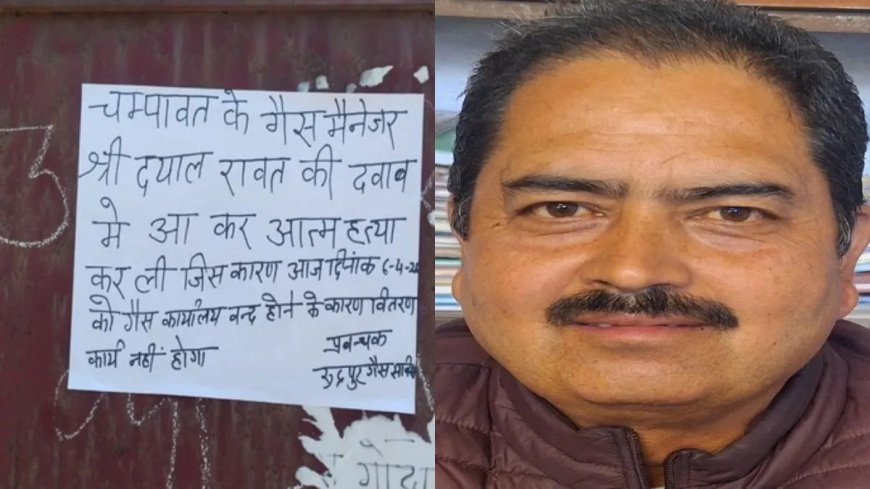 चम्पावत के गैस मैनेजर
श्री दयाल रावत की दवाब
मे आ कर आत्म हत्या
कर ली जिस कारण आज दिनांक 6-4-20
को गैस कार्यालय वन्द होने के कारण वितरण
कार्य नहीं होगा
प्रवन्धक
रुद्रपुर गैस
3
गोदा